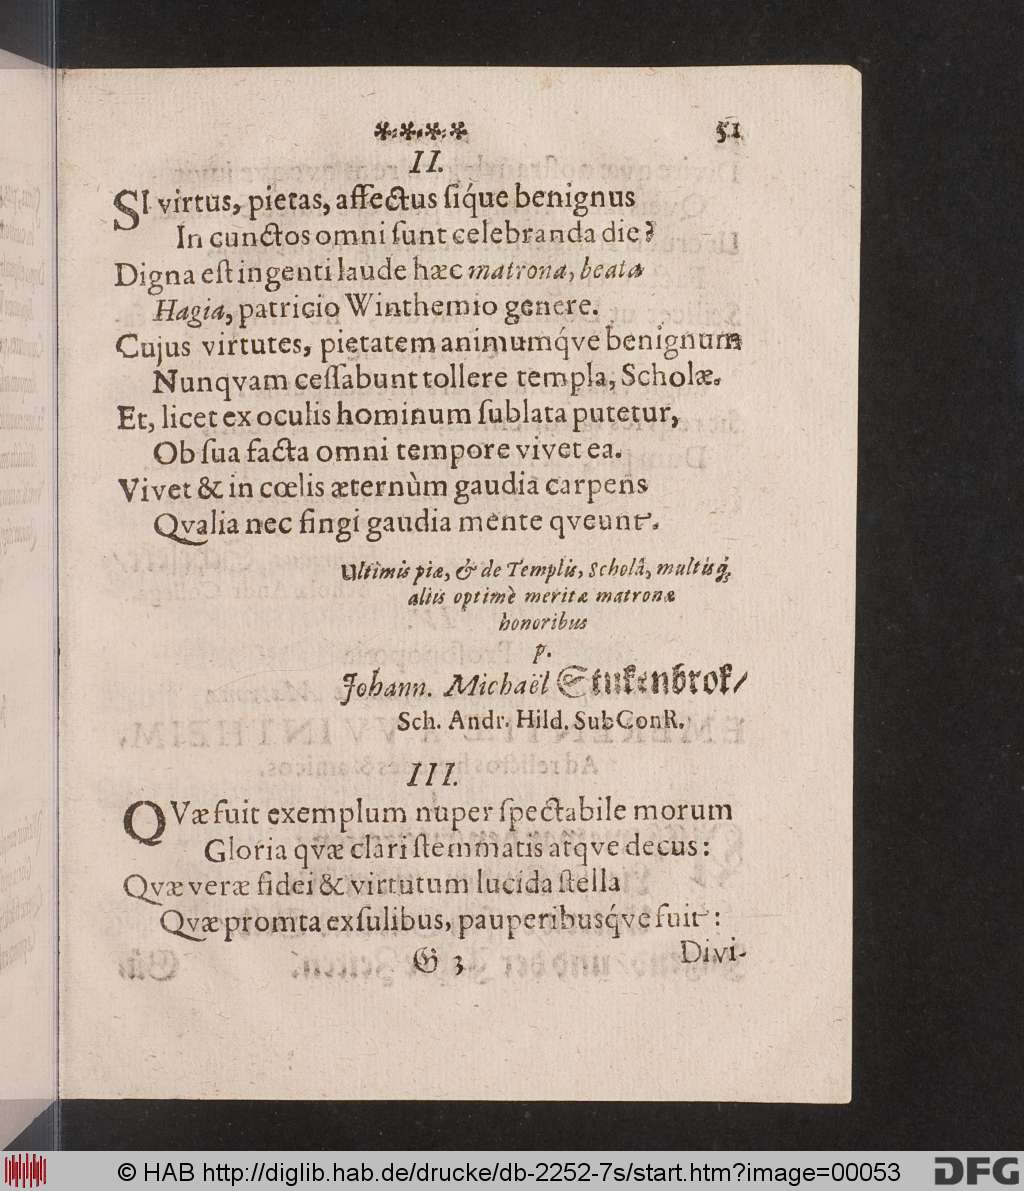 ✲·✲·✲·✲ 51
II.
SI virtus, pietas, affectus ſiq́ue benignus
In cunctos omni ſunt celebranda die?
Digna eſt ingenti laude hæc matrona, beata
Hagia, patricio Winthemio genere.
Cujus virtutes, pietatem animumq́ve benignum
Nunqvam ceſſabunt tollere templa, Scholæ.
Et, licet ex oculis hominum ſublata putetur,
Ob ſua facta omni tempore vivet ea.
Vivet & in cœlis æternùm gaudia carpens
Qvalia nec fingi gaudia mente qveunt.
Ultimis piæ, & de Templis, Scholâ, multisq́;
aliis optimè meritæ matronæ
honoribus
p.
Johann. Michaël Stukenbrok/
Sch. Andr. Hild. SubConR.
III.
QVæ fuit exemplum nuper ſpectabile morum
Gloria qvæ clari ſtemmatis atqve decus:
Qvæ veræ fidei & virtutum lucida ſtella
Qvæ promta exſulibus, pauperibusq́ve fuit:
G 3 Divi-
© HAB http://diglib.hab.de/drucke/db-2252-7s/start.htm?image=00053 DFG